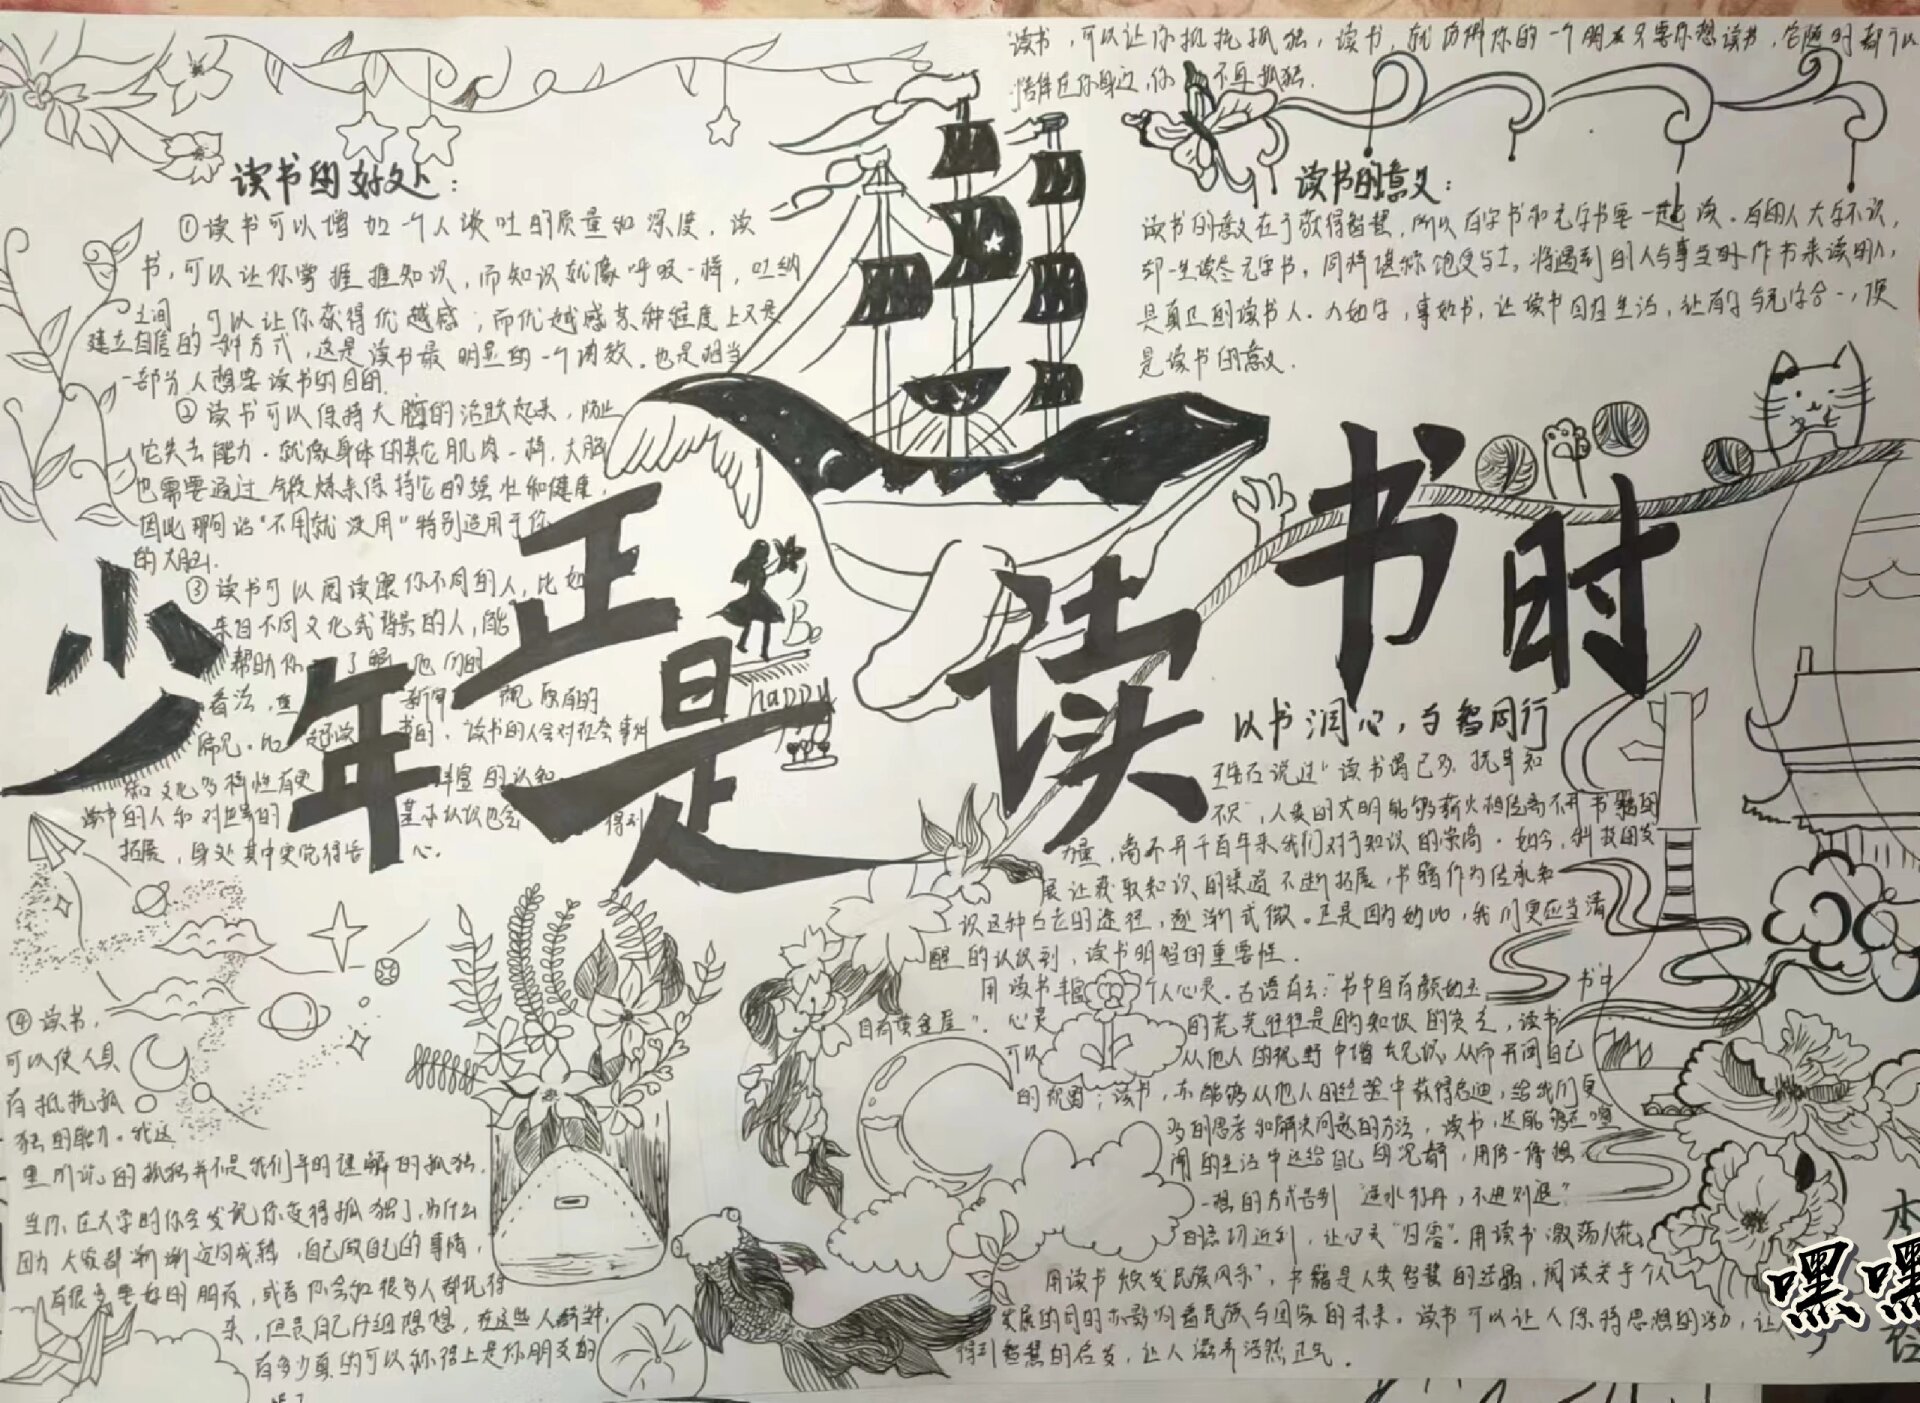 少年正是读书时
读书的好处：
①读书可以增加一个人谈吐的质量和深度，读
书，可以让你掌握推知识，而知识就像呼吸一样，吐纳
之间 可以让你获得优越感；而优越感某种程度上又是
建立自信的一种方式，这是读书最明显的一个功效，也是相当
一部分人想要读书的目的.
②读书可以保持大脑的活跃起来，防止
它失去能力．就像身体的其它肌肉一样，大脑
也需要通过锻炼来保持它的强壮和健康，
因此那句话“不用就没用”特别适用于你
的大脑.
③读书可以阅读跟你不同的人，比如
来自不同文化或背景的人，能
帮助你 了解他们的
看法，重 新审视原有的
偏见． 读书的人会对社会事件
和文化多样性有更 丰富的认知
读书的人和对世界的 基本认识也会 得到
拓展，身处其中更觉得 心．
④读书，
可以使人具
有抵抗孤
独的能力．我这
里所说的孤独并不是我们平时理解的孤独.
当你在大学时你会发现你变得孤独了，为什么
因为大家都渐渐迈向成熟，自己做自己的事情，
有很多要好的朋友，或者你会和很多人都玩得
来，但是自己仔细想想，在这些人群中，
有多少真的可以称得上是你朋友的
呢？
读书，可以让你抵抗孤独，读书，就仿佛你的一个朋友只要你想读书，它随时都可以
陪伴在你身边，你 不再孤独.
读书的意义：
读书的意义在于获得智慧，所以有字书和无字书要一起读．有的人大字不识，
却一生读尽无字书，同样堪称饱受与士，将遇到的人与事当时作书来读的人，
是真正的读书人．人如字，事如书，让读书回归生活，让有字与无字合一，便
是读书的意义.
以书润心，与智同行
王安石说过“读书谓已多，抚事知
不足”，人类的文明能够薪火相传离不开书籍的
力量，离不开千百年来我们对于知识的崇尚．如今，科技的发
展让获取知识的渠道不断拓展，书籍作为传承知
识这种古老的途径，逐渐式微．正是因为如此，我们更应当清
醒的认识到，读书明智的重要性．
用读书丰富个人心灵．古语有云：“书中自有颜如玉， 书中
自有黄金屋”．心灵 的荒芜往往是因为知识的缺乏，读书
可以 从他人的视野中增长见识，从而开阔自己
的视野；读书，亦能够从他人的经验中获得启迪，给我们更
多的思考和解决问题的方法，读书，还能够在喧
闹的生活中还给自己 的沉静，用停一停想
一想的方式告别“逆水行舟，不进则退”
的急功近利，让心灵“归零”．用读书激荡人花，
用读书焕发民族风采”，书籍是人类智慧的结晶，阅读关乎个人
发展的同时亦影响着民族与国家的未来．读书可以让人保持思想的活力，让人
得到智慧的启发，让人滋养浩然正气．
Be
happy
嘿嘿